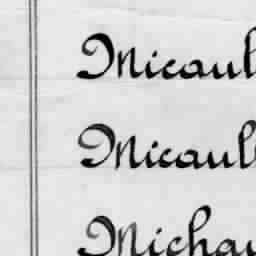 Micaul
Micaul
Michau